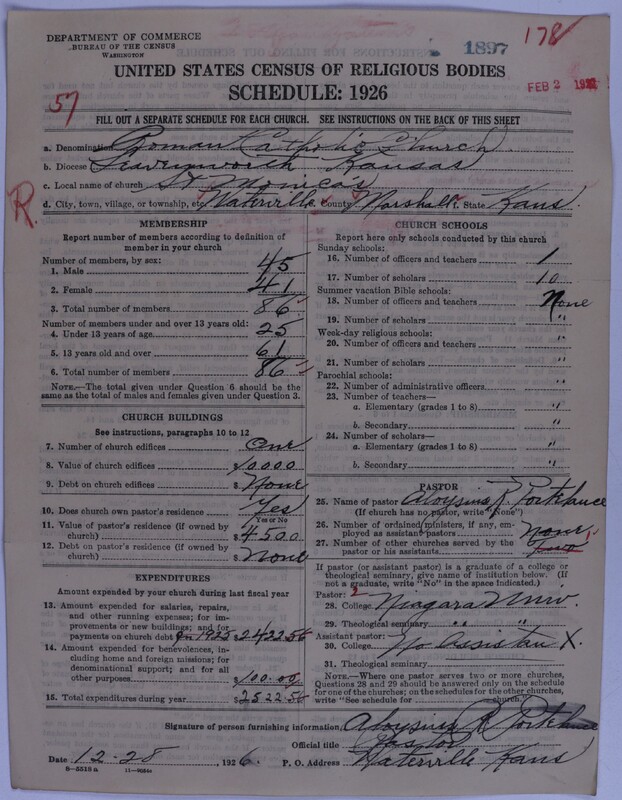 DEPARTMENT OF COMMERCE
BUREAU OF THE CENSUS
WASHINGTON
1897
178
FEB 2
UNITED STATES CENSUS OF RELIGIOUS BODIES
SCHEDULE: 1926
57
FILL OUT A SEPARATE SCHEDULE FOR EACH CHURCH. SEE INSTRUCTIONS ON THE BACK OF THIS SHEET
a. Denomination Roman Catholic Church
b. Diocese Leavenworth Kansas
c. Local name of church St Monica's
R.
d. City, town, village, or township, etc. Waterville e. County Marshall f. State Kans.
MEMBERSHIP
Report number of members according to definition of
member in your church
Number of members, by sex:
1. Male 45
2. Female 41
3. Total number of members 86
Number of members under and over 13 years old:
4. Under 13 years of age 25
5. 13 years old and over 61
6. Total number of members 86
NOTE.—The total given under Question 6 should be
the same as the total of males and females given under Question 3.
CHURCH BUILDINGS
See instructions, paragraphs 10 to 12
7. Number of church edifices One
8. Value of church edifices $10000
9. Debt on church edifices $ None
10. Does church own pastor's residence Yes
Yes or No
11. Value of pastor's residence (if owned by
church) $4500
12. Debt on pastor's residence (if owned by
church) $ None
EXPENDITURES
Amount expended by your church during last fiscal year
13. Amount expended for salaries, repairs,
and other running expenses; for
improvements or new buildings; and for
payments on church debt In 1925 $2422.56
14. Amount expended for benevolences,
including home and foreign missions; for
denominational support; and for all
other purposes $100.00
15. Total expenditures during year $2522.56
CHURCH SCHOOLS
Report here only schools conducted by this church
Sunday schools:
16. Number of officers and teachers 1
17. Number of scholars 10
Summer vacation Bible schools:
18. Number of officers and teachers None
19. Number of scholars "
Week-day religious schools:
20. Number of officers and teachers "
21. Number of scholars "
Parochial schools:
22. Number of administrative officers "
23. Number of teachers—
a. Elementary (grades 1 to 8) "
b. Secondary "
24. Number of scholars—
a. Elementary (grades 1 to 8) "
b. Secondary "
PASTOR
25. Name of pastor Aloysius R Portelance
(If church has no pastor, write "None")
26. Number of ordained ministers, if any, em-
ployed as assistant pastors None
27. Number of other churches served by the
pastor or his assistants Two
If pastor (or assistant pastor) is a graduate of a college or
theological seminary, give name of institution below. (If
not a graduate, write "No" in the space indicated.)
Pastor:
28. College Niagara Univ.
29. Theological seminary " "
Assistant pastor:
30. College No Assistan X.
31. Theological seminary
NOTE.—Where one pastor serves two or more churches,
Questions 28 and 29 should be answered only on the schedule
for one of the churches; on the schedules for the other churches,
write "See schedule for church."
Signature of person furnishing information Aloysius R Portelance
Official title Pastor
Date 12-28, 1926. P. O. Address Waterville Kans
8—5318a